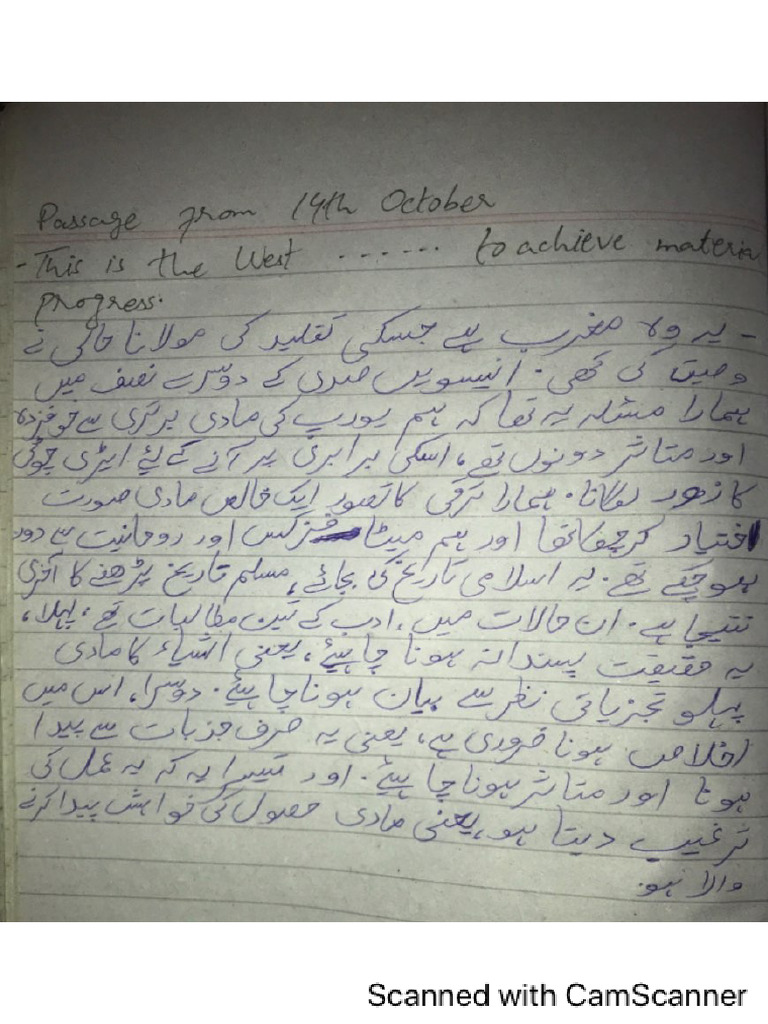 Passage from 14th October
- This is the West ...... to achieve materia
progress.
- یہ وہ مغرب ہے جسکی تقلید کی مولانا حالی نے
وصیت کی تھی. انیسویں صدی کے دوسرے نصف میں
ہمارا مسئلہ یہ تھا کہ ہم یورپ کی مادی برتری سے خوفزدہ
اور متاثر دونوں تھے، اسکی برابری پر آنے کے لئے ایڑی چوٹی
کا زور لگانا. ہمارا ترقی کا تصور ایک خالص مادی صورت
اختیار کرچکا تھا اور ہم میٹا فزکس اور روحانیت سے دور
ہوچکے تھے. یہ اسلامی تاریخ کی بجائے، مسلم تاریخ پڑھنے کا آخری
نتیجا ہے. ان حالات میں، ادب کے تین مطالبات تھے، پہلا،
یہ حقیقت پسندانہ ہونا چاہیئے، یعنی اشیاء کا مادی
پہلو تجزیاتی نظر سے بیان ہونا چاہیئے. دوسرا، اس میں
اخلاص ہونا ضروری ہے، یعنی یہ صرف جذبات سے پیدا
ہوتا اور متاثر ہونا چاہیئے. اور تیسرا یہ کہ یہ عمل کی
ترغیب دیتا ہو، یعنی مادی حصول کی خواہش پیدا کرنے
والا ہو.
Scanned with CamScanner